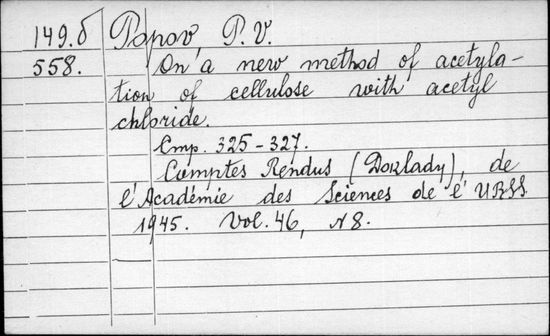 149.б Popov, P. V.
558. On a new method of acetyla-
tion of cellulose with acetyl
chloride.
Стр. 325-327.
Comptes Rendus (Doklady), de
l'Académie des Sciences de l'URSS
1945. Vol. 46, N 8.